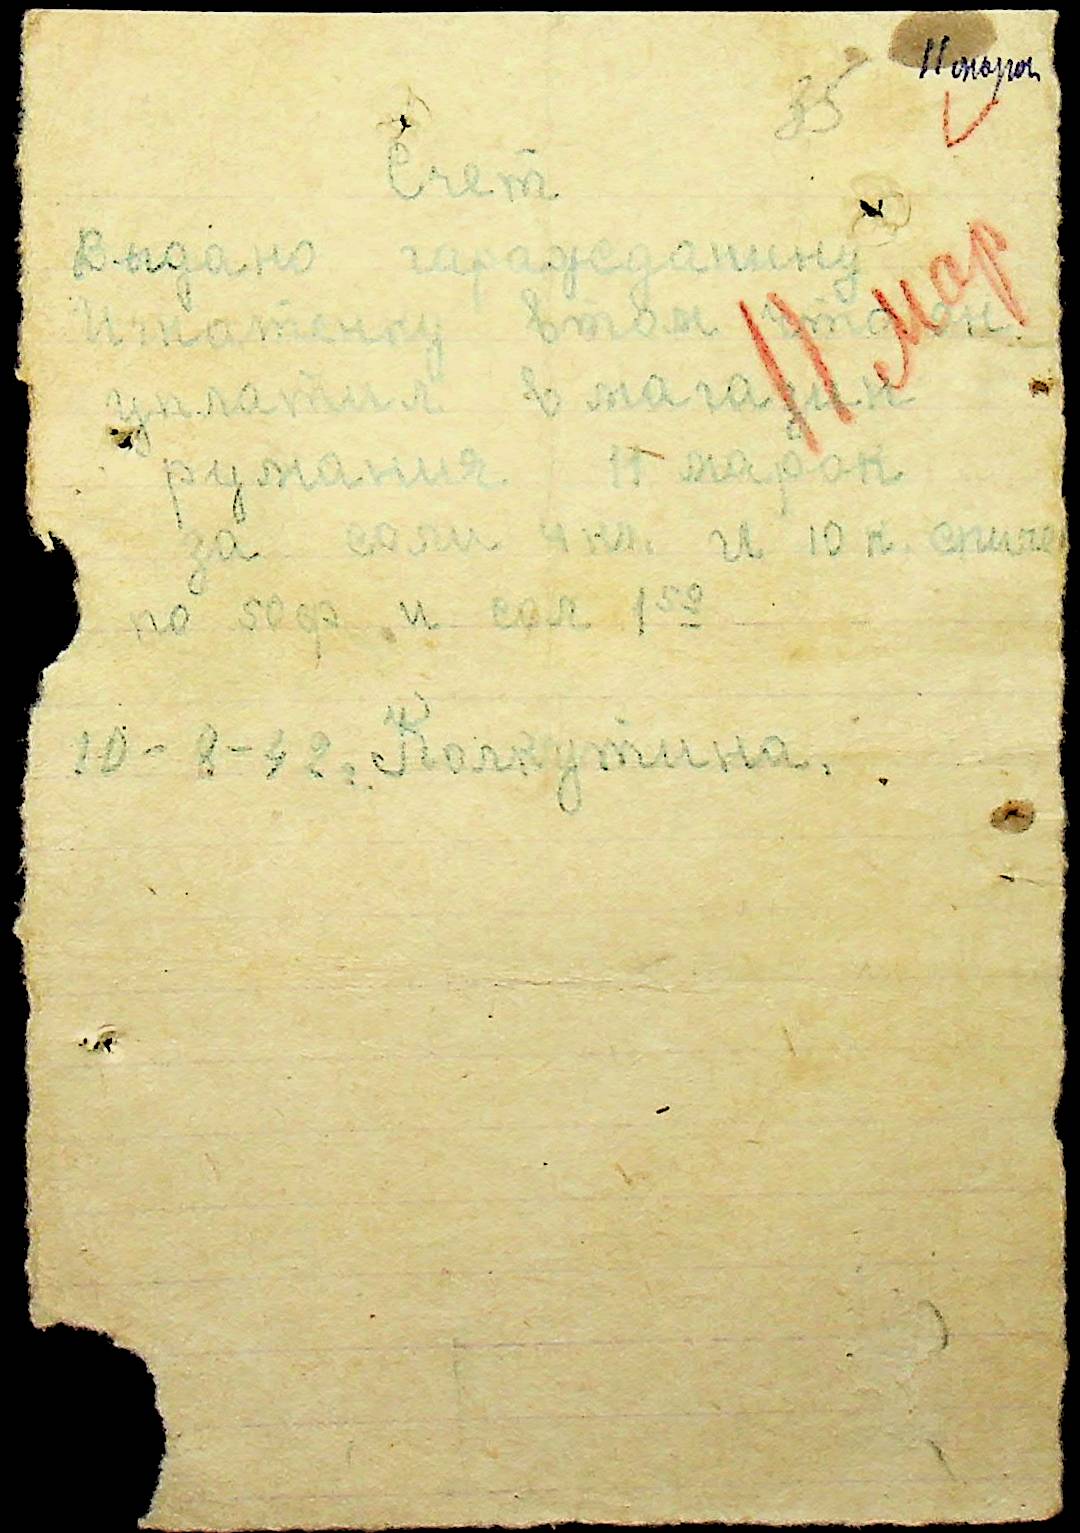 11 марок
35
Счет
Выдано гараждатину
Игнатенку втом что он
уплатил в магазин
румания 11 марок
11 мар
за соли 4 кл. и 10 к. спиче
по 50ф и сол 1 50
10-8-42. Колкутина.